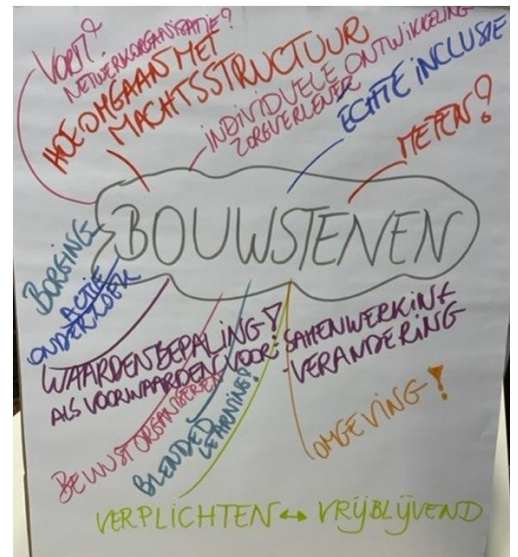 VORM?
NETWERKORGANISATIE?
HOE OMGAAN MET
MACHTSSTRUCTUUR
INDIVIDUELE ONTWIKKELING
ZORGVERLENER
ECHTE INCLUSIE
METEN?
BOUWSTENEN
BORGING
ACTIE
ONDERZOEK
WAARDENBEPALING!
ALS VOORWAARDEN VOOR:
SAMENWERKING
-VERANDERING
BEWUST ORGANISEREN
BLENDED
LEARNING!
OMGEVING!
VERPLICHTEN ↔ VRIJBLIJVEND